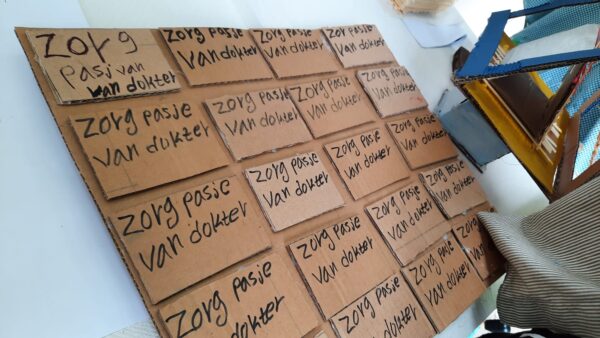 Zorg
pasj van
van dokter
Zorg pasje
van dokter
Zorg pasje
van dokter
Zorg pasje
van dokter
Zorg pasje
van dokter
Zorg pasje
van dokter
Zorg pasje
van dokter
Zorg pasje
van dokter
Zorg pasje
van dokter
Zorg pasje
van dokter
Zorg pasje
van dokter
Zorg pasje
van dokter
Zorg pasje
van dokter
Zorg pasje
van dokter
Zorg pasje
van dokter
Zorg pasje
van dokter
Zorg pasje
van dokter
Zorg pasje
van dokter